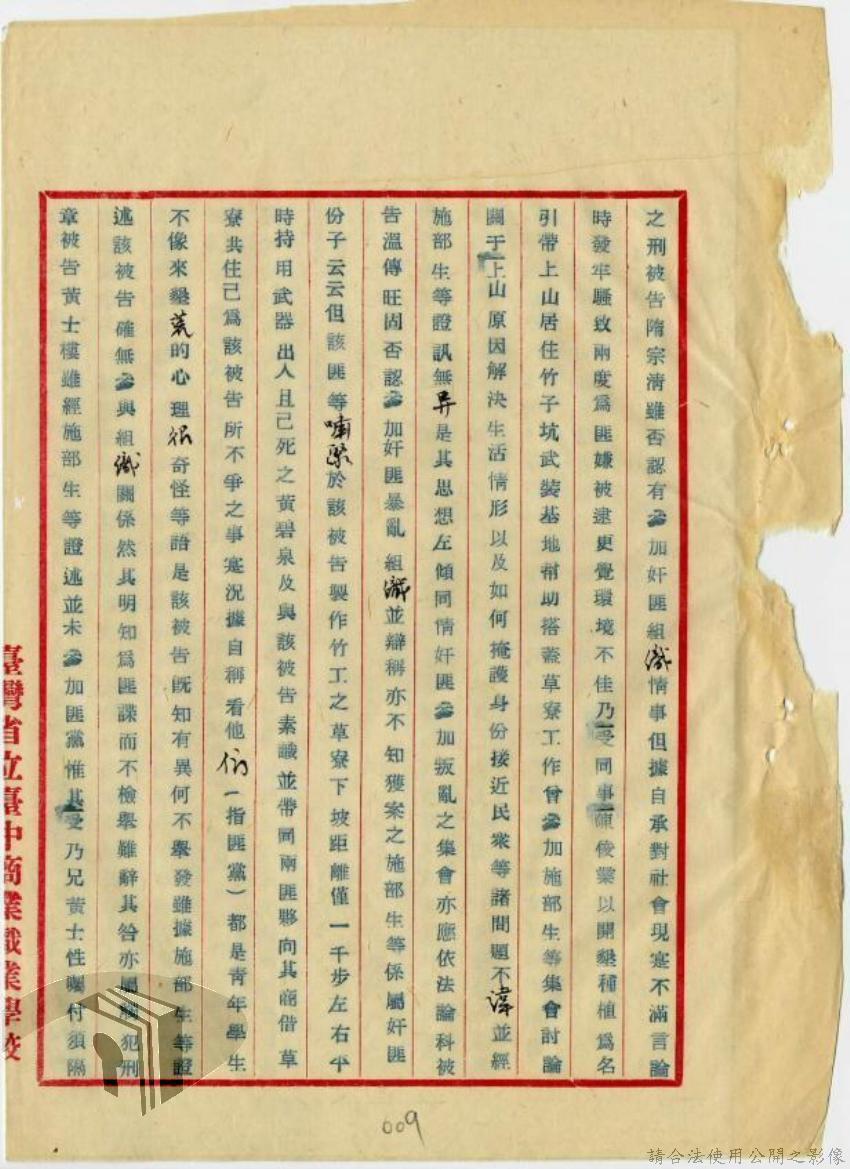 之刑被告隋宗清雖否認有參加奸匪組織情事但據自承對社會現寔不滿言論
時發牢騷致兩度爲匪嫌被逮更覺環境不佳乃受同事陳俊業以開墾種植爲名
引帶上山居住竹子坑武裝基地幫助搭蓋草寮工作曾參加施部生等集會討論
關于上山原因解決生活情形以及如何掩護身份接近民衆等諸問題不諱並經
施部生等證訊無异是其思想左傾同情奸匪參加叛亂之集會亦應依法論科被
告溫傳旺固否認參加奸匪暴亂組織並辯稱亦不知獲案之施部生等係屬奸匪
份子云云但該匪等嘯聚於該被告製作竹工之草寮下坡距離僅一千步左右平
時持用武器出入且已死之黃碧泉及與該被告素識並帶同兩匪夥向其商借草
寮共住己爲該被告所不爭之事寔況據自稱看他们（指匪黨）都是青年學生
不像來墾荒的心理很奇怪等語是該被告旣知有異何不舉發雖據施部生等證
述該被告確無參與組織關係然其明知爲匪諜而不檢舉雖辭其咎亦屬觸犯刑
章被告黃士樓雖經施部生等證述並未參加匪黨惟其受乃兄黃士性囑付須隔
臺灣省立臺中商業職業學校
009
請合法使用公開之影像